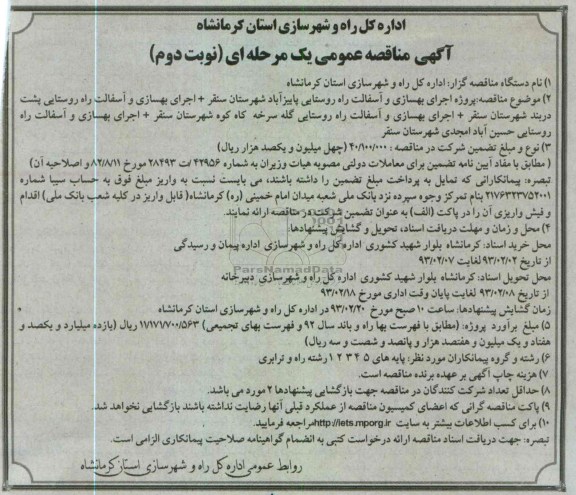 اداره کل راه و شهرسازی استان کرمانشاه
آگهی مناقصه عمومی یک مرحله ای (نوبت دوم)
۱) نام دستگاه مناقصه گزار: اداره کل راه و شهرسازی استان کرمانشاه
۲) موضوع مناقصه:پروژه اجرای بهسازی و آسفالت راه روستایی پاییزآباد شهرستان سنقر + اجرای بهسازی و آسفالت راه روستایی پشت
دربند شهرستان سنقر + اجرای بهسازی و آسفالت راه روستایی گله سرخه کاه کوه شهرستان سنقر + اجرای بهسازی و آسفالت راه
روستایی حسین آباد امجدی شهرستان سنقر
۳) نوع و مبلغ تضمین شرکت در مناقصه : ۴۰/۱۰۰/۰۰۰ (چهل میلیون و یکصد هزار ریال)
( مطابق با مفاد آیین نامه تضمین برای معاملات دولتی مصوبه هیات وزیران به شماره ۴۲۹۵۶/ت ۲۸۴۹۳ مورخ ۸۲/۸/۱۱ و اصلاحیه آن)
تبصره: پیمانکارانی که تمایل به پرداخت مبلغ تضمین را داشته باشند، می بایست نسبت به واریز مبلغ فوق به حساب سیبا شماره
۲۱۷۶۴۲۳۷۵۲۰۰۱ بنام تمرکز وجوه سپرده نزد بانک ملی شعبه میدان امام خمینی (ره) کرمانشاه( قابل واریز در کلیه شعب بانک ملی) اقدام
و فیش واریزی آن را در پاکت (الف) به عنوان تضمین شرکت در مناقصه ارائه نمایند.
۴) محل و زمان و مهلت دریافت اسناد، تحویل و گشایش پیشنهادها:
محل خرید اسناد: کرمانشاه بلوار شهید کشوری اداره کل راه و شهرسازی اداره پیمان و رسیدگی
از تاریخ ۹۳/۰۲/۰۲ لغایت ۹۳/۰۲/۰۷
محل تحویل اسناد: کرمانشاه بلوار شهید کشوری اداره کل راه و شهرسازی دبیرخانه
از تاریخ ۹۳/۰۲/۰۸ لغایت پایان وقت اداری مورخ ۹۳/۰۲/۱۸
زمان گشایش پیشنهادها: ساعت ۱۰ صبح مورخ ۹۳/۰۲/۲۰ در اداره کل راه و شهرسازی استان کرمانشاه
۵) مبلغ برآورد پروژه: (مطابق با فهرست بها راه و باند سال ۹۲ و فهرست بهای تجمیعی) ۱۱/۱۷۱/۷۰۰/۵۶۳ ریال (یازده میلیارد و یکصد و
هفتاد و یک میلیون و هفتصد هزار و پانصد و شصت و سه ریال)
۶) رشته و گروه پیمانکاران مورد نظر: پایه های ۵ ۴ ۳ ۲ ۱ رشته راه و ترابری
۷) هزینه چاپ آگهی بر عهده برنده مناقصه است.
۸) حداقل تعداد شرکت کنندگان در مناقصه جهت بازگشایی پیشنهادها ۲ مورد می باشد.
۹) پاکت مناقصه گرانی که اعضای کمیسیون مناقصه از عملکرد قبلی آنها رضایت نداشته باشند بازگشایی نخواهد شد.
۱۰) برای کسب اطلاعات بیشتر به سایت http://iets.mporg.ir مراجعه فرمایید.
تبصره: جهت دریافت اسناد مناقصه ارائه درخواست کتبی به انضمام گواهینامه صلاحیت پیمانکاری الزامی است.
روابط عمومی اداره کل راه و شهرسازی استان کرمانشاه
ParsNamadData